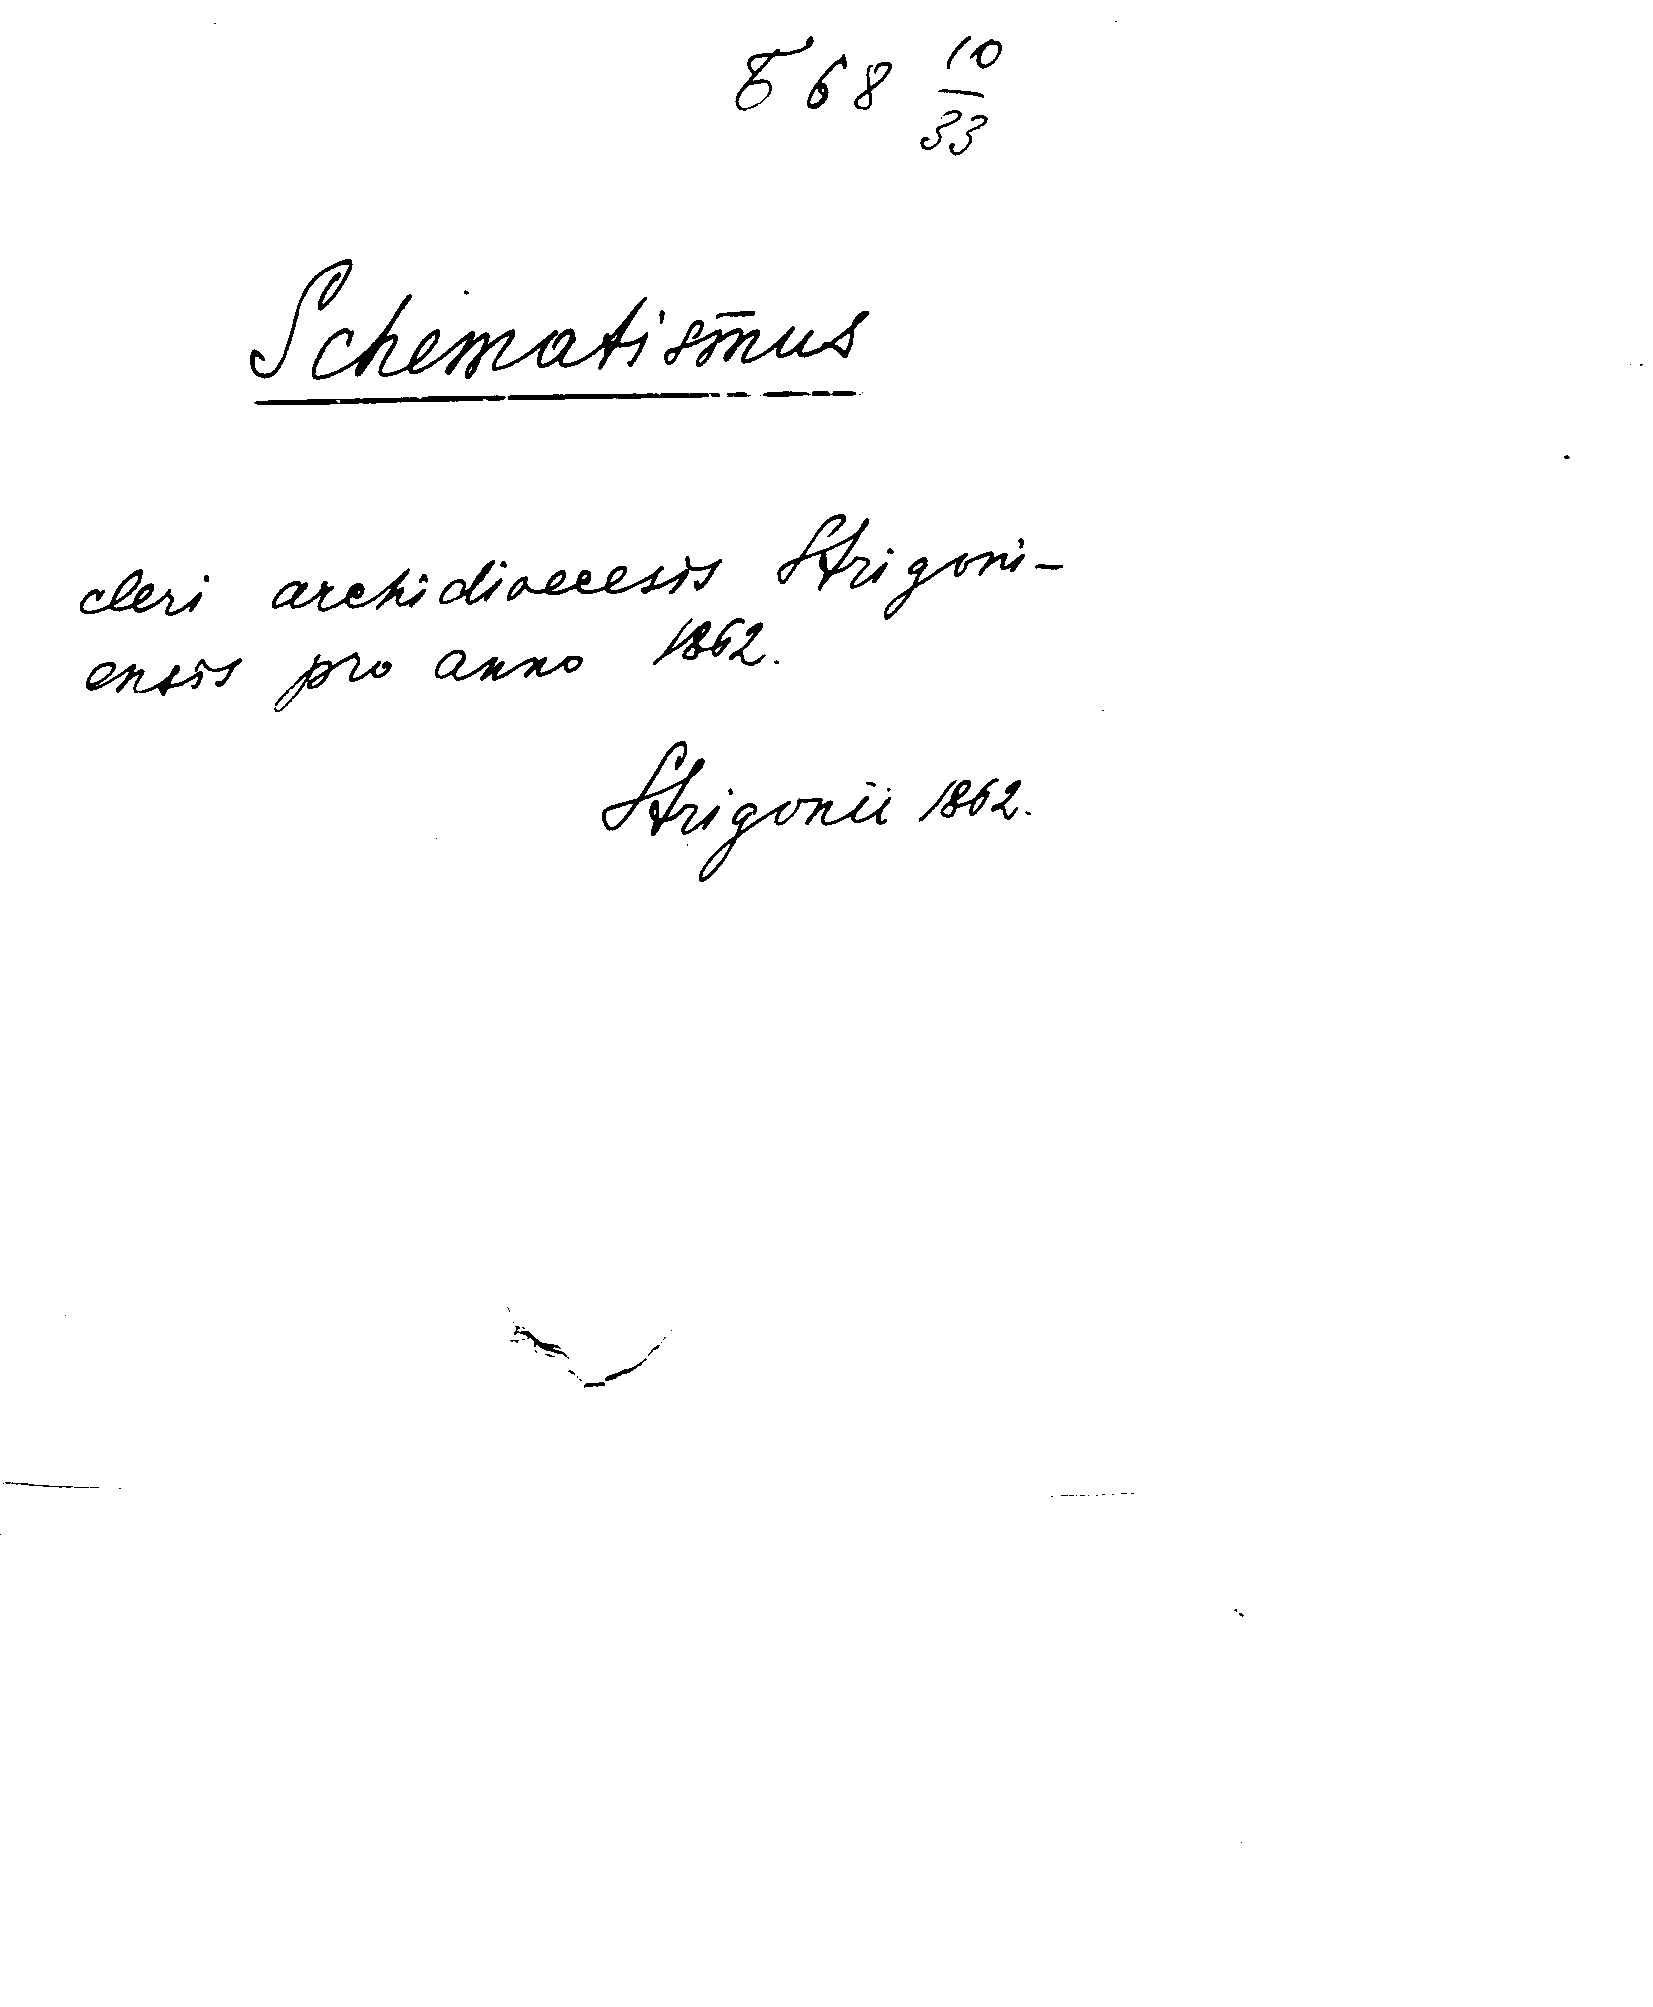 Б 68 10/33
Schematismus
cleri archidioecesis Strigoni-
ensis pro anno 1862.
Strigonii 1862.